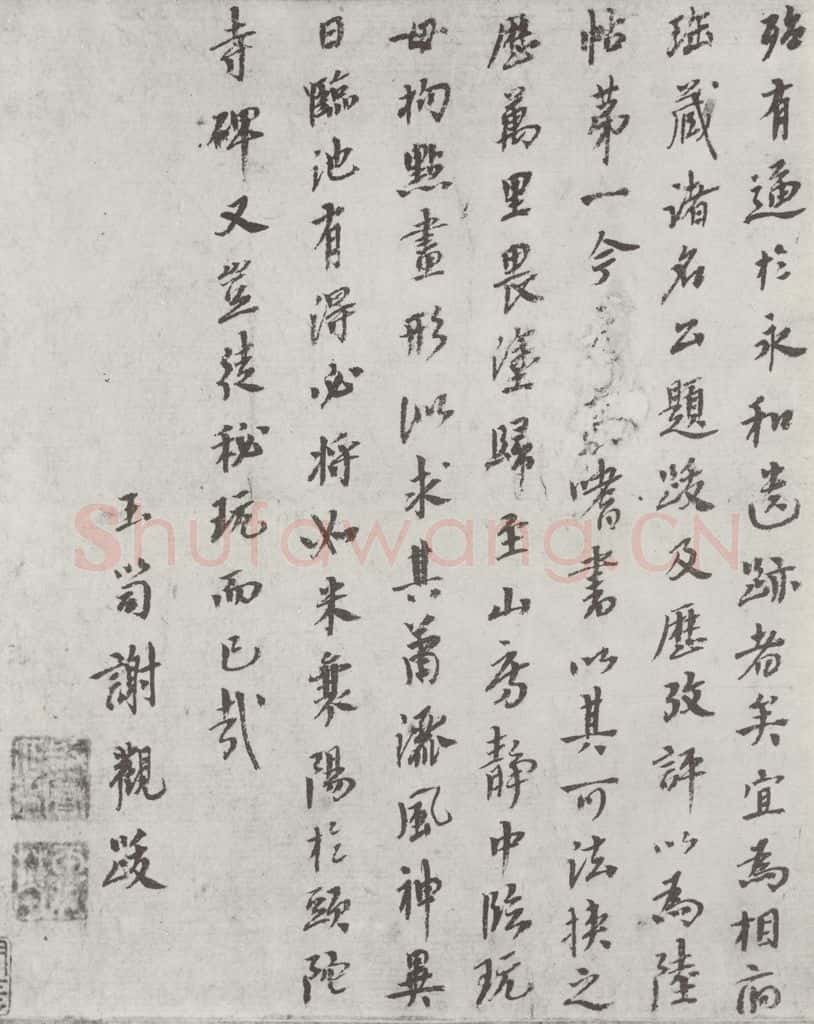 殆有逼於永和遺跡者矣宜為相府
珍藏諸名公題跋及歷攷評以為陸
帖第一今嗜書以其可法挾之
歷萬里畏塗歸至山房靜中臨玩
毋拘點畫形似求其蕭灑風神異
日臨池有得必將如米襄陽於頭陀
寺碑又豈徒秘玩而已哉
玉笥謝觀跋
Shufawang.CN